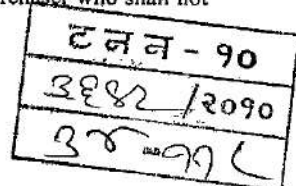 who shall not
ट न न - १०
३६४२ /२०१०
३४ - ११८